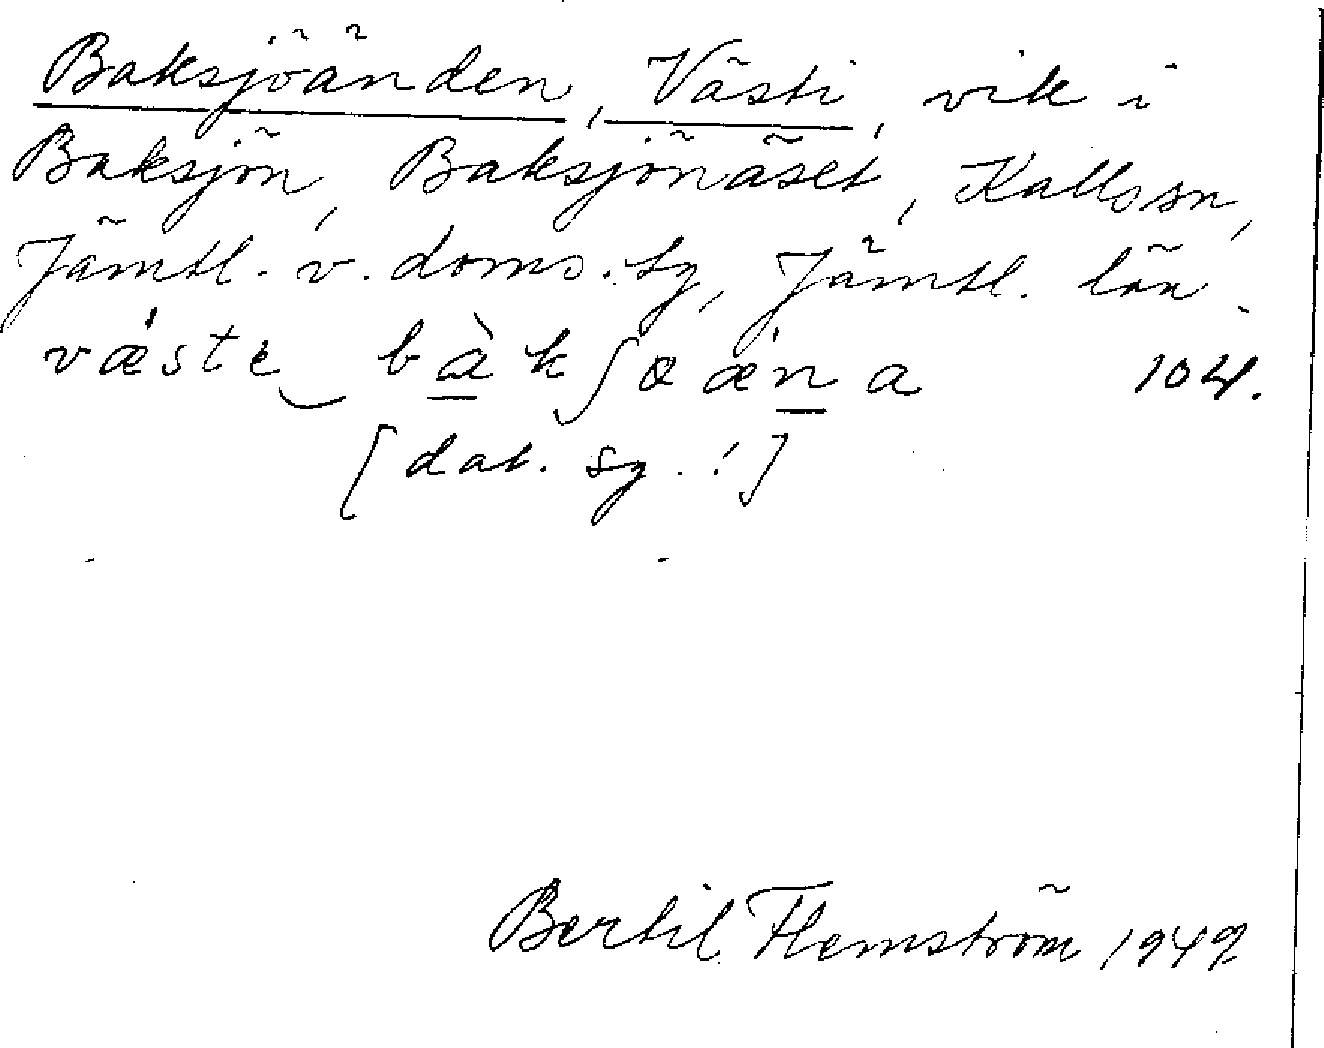 Baksjöänden, Västi, vik i
Baksjön, Baksjönäset, Kall ssn,
Jämtl. v. doms.sg, Jämtl. län.
væ̀stè‿ bàkʃoæ̀na 104.
[dat. sg.!]
Bertil Flemström 1949